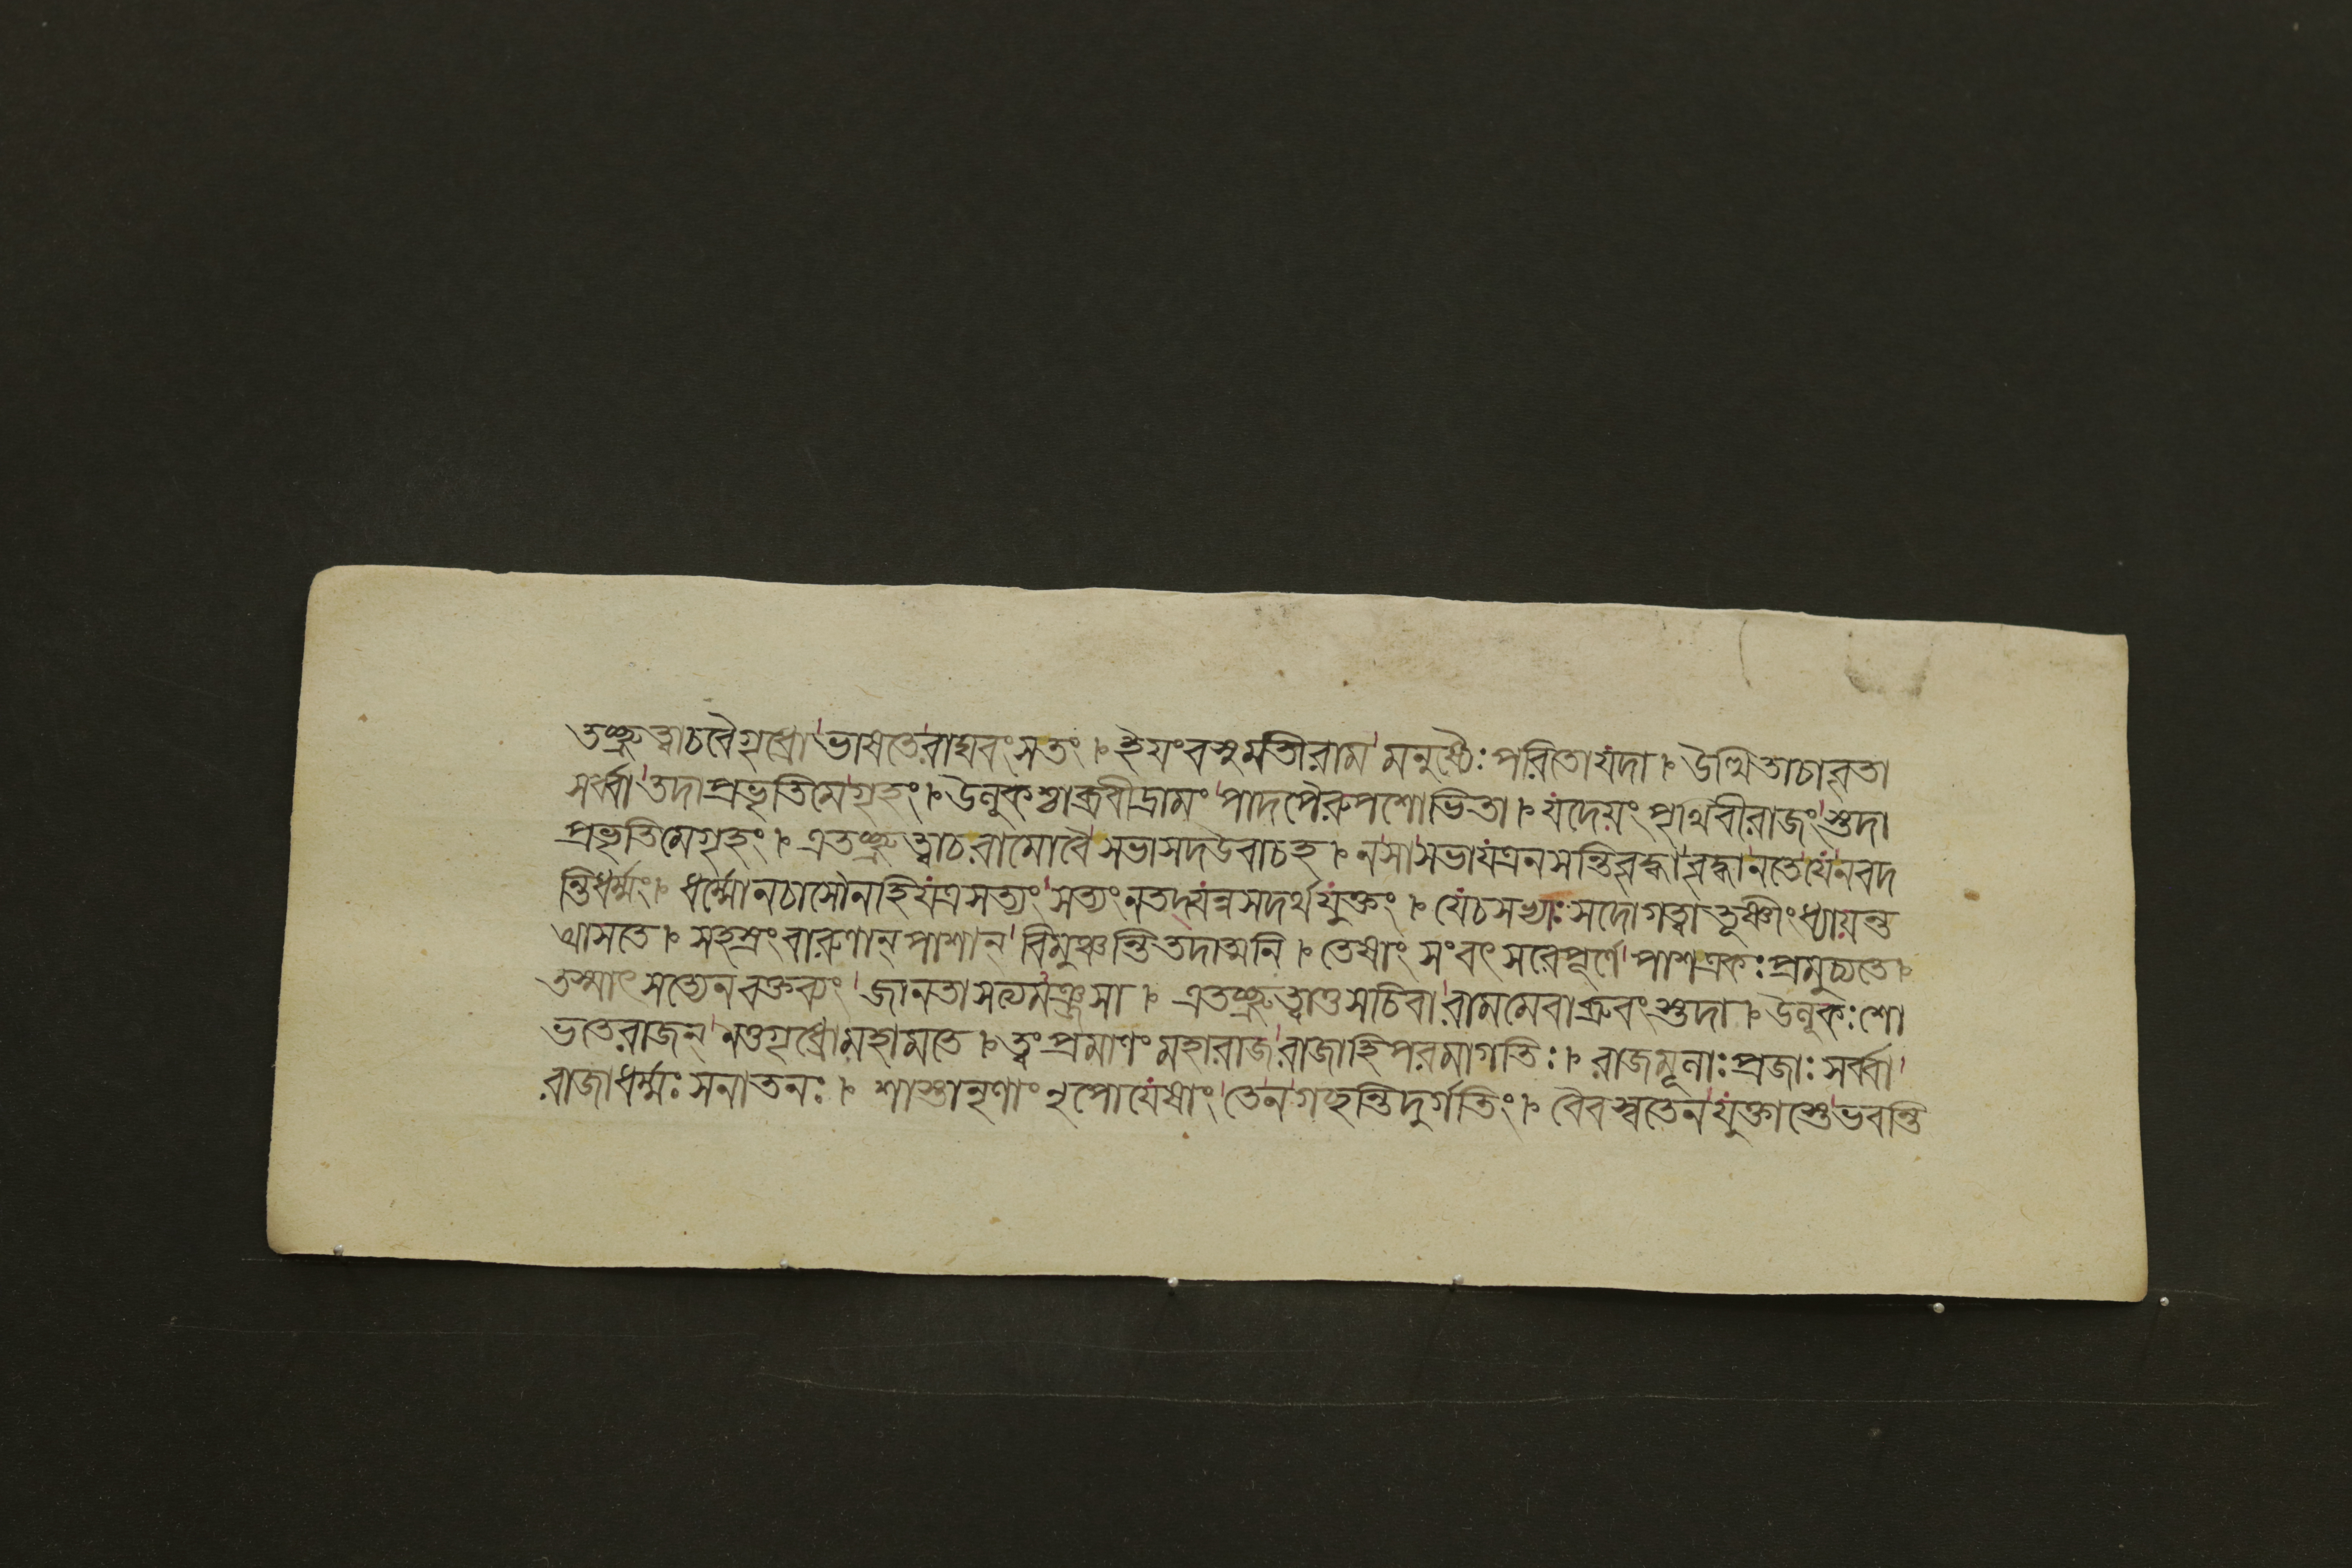 তচ্ছ্রুত্বাচবৈগৃধ্রো ভাষতেরাঘবংসতং ৷ ইয়ংবসুমতীরাম মনুষ্যৈঃপরিতোযদা ৷ উত্থিতাচাবৃতা
সর্ব্বা তদাপ্রভৃতিমেগৃহং ৷ উলূকশ্চাব্রবীদ্রামং পাদপৈরুপশোভিতা ৷ যদেয়ংপৃথিবীরাজং স্তদা
প্রভৃতিমেগৃহং ৷ এতচ্ছ্রুত্বাচরামোবৈ সভাসদউবাচহ ৷ নসাসভাযত্রনসন্তিবৃদ্ধা বৃদ্ধানতেযেনবদ
ন্তিধর্ম্মং ৷ ধর্ম্মোনচাসৌনহিযত্রসত্যং সত্যংনতদ্যন্নসদর্থযুক্তং ৷ যেচসখ্যাঃসদোগত্বা তূষ্ণীংধ্যায়ন্ত
আসতে ৷ সহস্রংবারুণান্পাশান্ বিমুঞ্চন্তিতদাত্মনি ৷ তেষাংসংবৎসরেপূর্ণে পাশএকঃপ্রমুচ্যতে ৷
তস্মাৎসত্যেনবক্তব্যং জানতাসত্যমঞ্জসা ৷ এতচ্ছ্রুত্বাতুসচিবা রামমেবাব্রুবংস্তদা ৷ উলূকঃশো
ভতেরাজন্ নতুগৃধ্রোমহামতে ৷ ত্বংপ্রমাণংমহারাজ রাজাহিপরমাগতিঃ ৷ রাজমূলাঃপ্রজাঃসর্ব্বা
রাজাধর্ম্মঃসনাতনঃ ৷ শাস্তানৃণাংনৃপোযেষাং তেনগচ্ছন্তিদুর্গতিং ৷ বৈবস্বতেনযুক্তাস্তে ভবন্তি